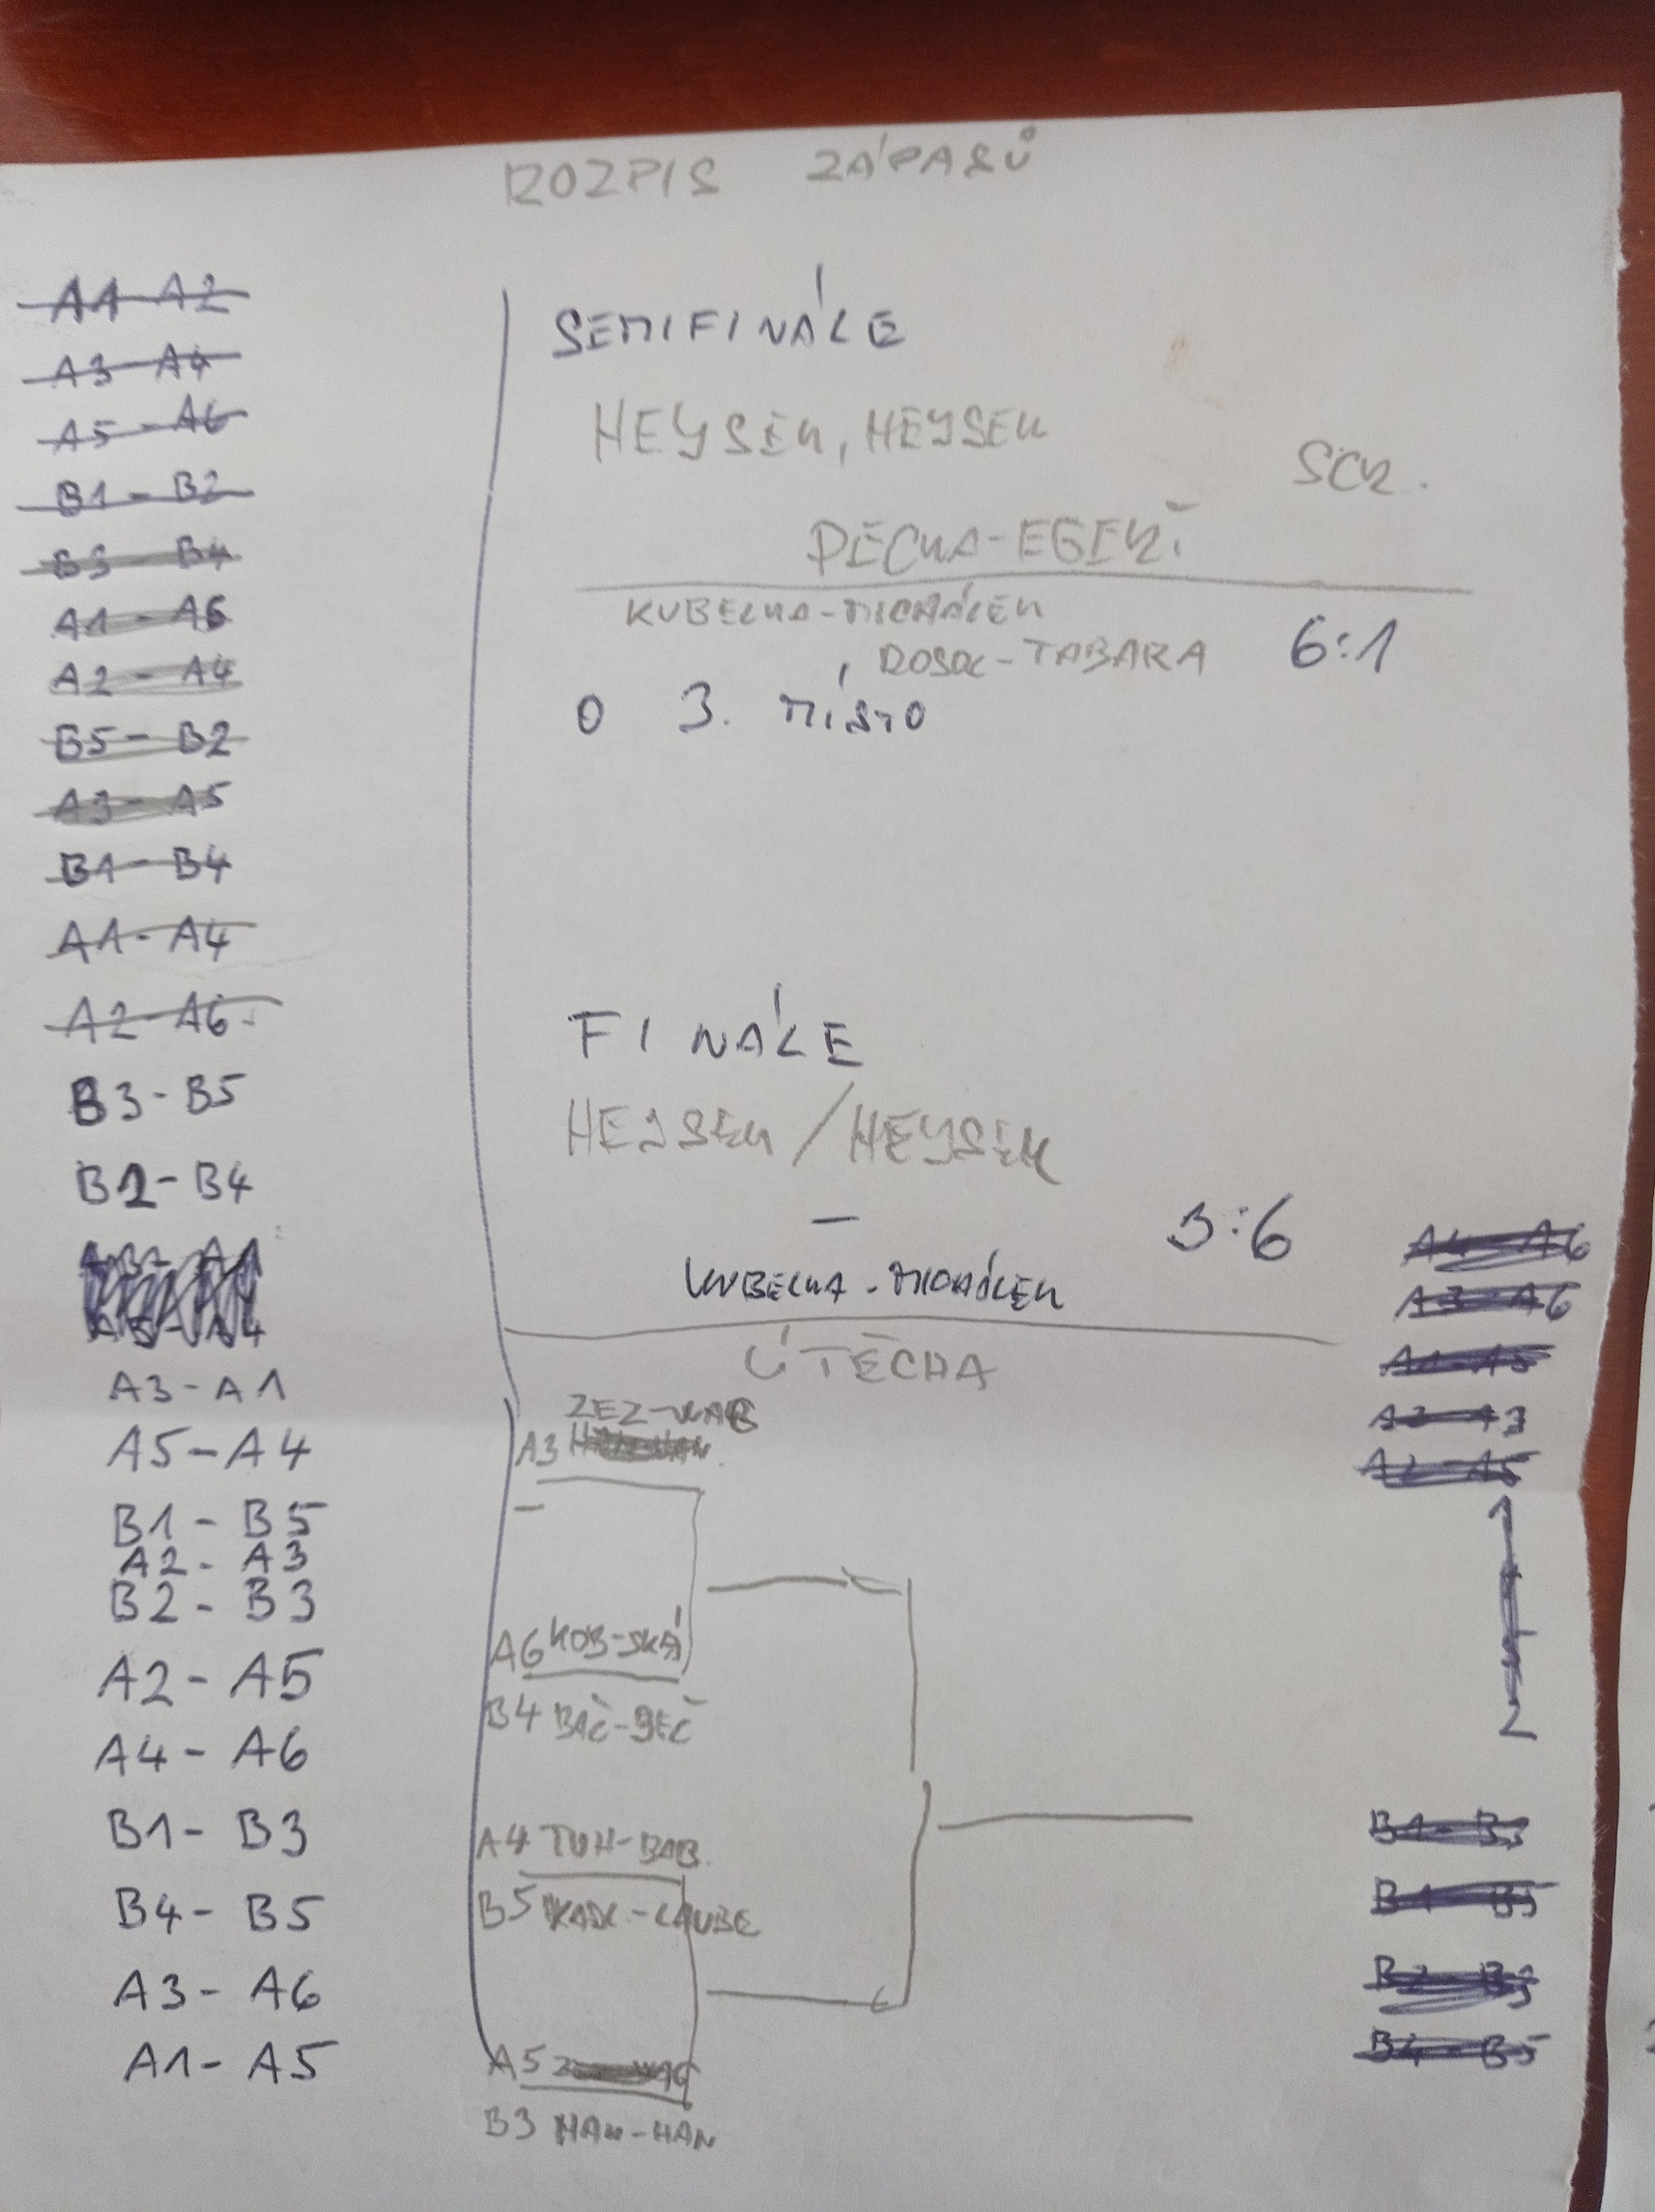 ROZPIS ZÁPASŮ
A1-A2
A3-A4
A5-A6
B1-B2
B3-B4
A1-A6
A2-A4
B5-B2
A3-A5
B1-B4
A1-A4
A2-A6
B3-B5
B2-B4
A3-A1
A5-A4
B1-B5
A2-A3
B2-B3
A2-A5
A4-A6
B1-B3
B4-B5
A3-A6
A1-A5
SEMIFINÁLE
HEYSEK, HEYSEK
SCR.
PECKA-EGERT
KUBELKA-MICHÁLEK
ROSOL-TABARA 6:1
O 3. MÍSTO
FINÁLE
HEJSEK/HEYSEK
- 3:6
KUBELKA-MICHÁLEK
ÚTĚCHA
ZEZ-KAB
A3
-
A6 KOB-SKÁ
B4 BIČ-BEČ
A4 TUH-BAB.
B5 KADL-LAUBE
A5
B3 HAN-HAN
A4-A6
A3-A6
A1-A5
A2-A3
A2-A5
1
2
B1-B3
B1-B5
B2-B3
B4-B5